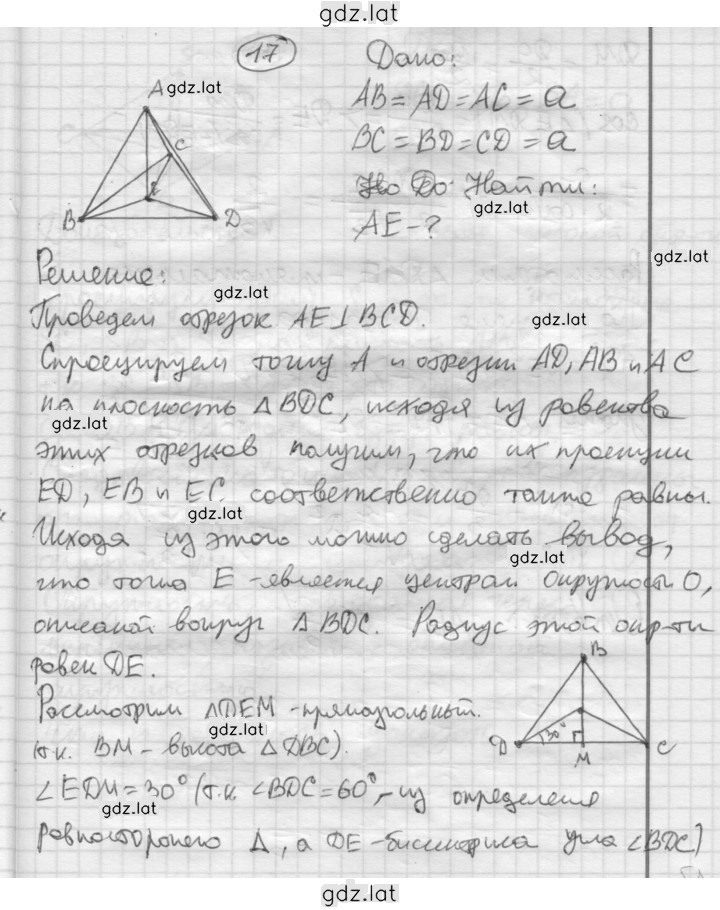 gdz.lat
17
Дано:
A gdz.lat
AB = AD = AC = a
C
BC = BD = CD = a
E
Найти:
gdz.lat
B
D
AE - ?
gdz.lat
Решение:
gdz.lat
Проведем отрезок AE⊥BCD.
gdz.lat
Спроецируем точку A и отрезки AD, AB и AC
на плоскость ΔBDC, исходя из равенства
gdz.lat
этих отрезков получим, что их проекции
ED, EB и EC соответственно также равны.
gdz.lat
Исходя из этого можно сделать вывод,
gdz.lat
что точка E - является центром окружности O,
описаной вокруг ΔBDC. Радиус этой окр-ти
равен DE.
B
Рассмотрим ΔDEM - прямоугольный.
gdz.lat
(т.к. BM - высота ΔDBC).
D
30°
M
C
∠EDM = 30° (т.к. ∠BDC = 60°, - из определения
gdz.lat
равностороннего Δ, а DE - биссектриса угла ∠BDC)
gdz.lat